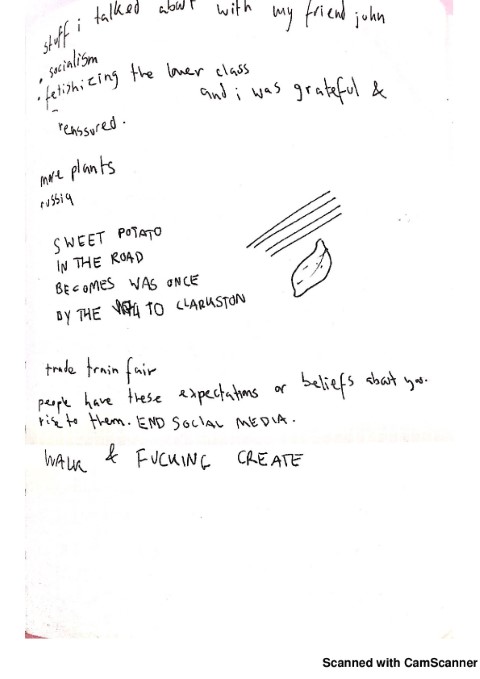 stuff i talked about with my friend john
• socialism
• fetishizing the lower class
and i was grateful &
reassured.
more plants
russia
SWEET POTATO
IN THE ROAD
BECOMES WAS ONCE
BY THE TO CLARKSTON
trade train fair
people have these expectations or beliefs about you.
rise to them. END SOCIAL MEDIA.
WALK & FUCKING CREATE
Scanned with CamScanner